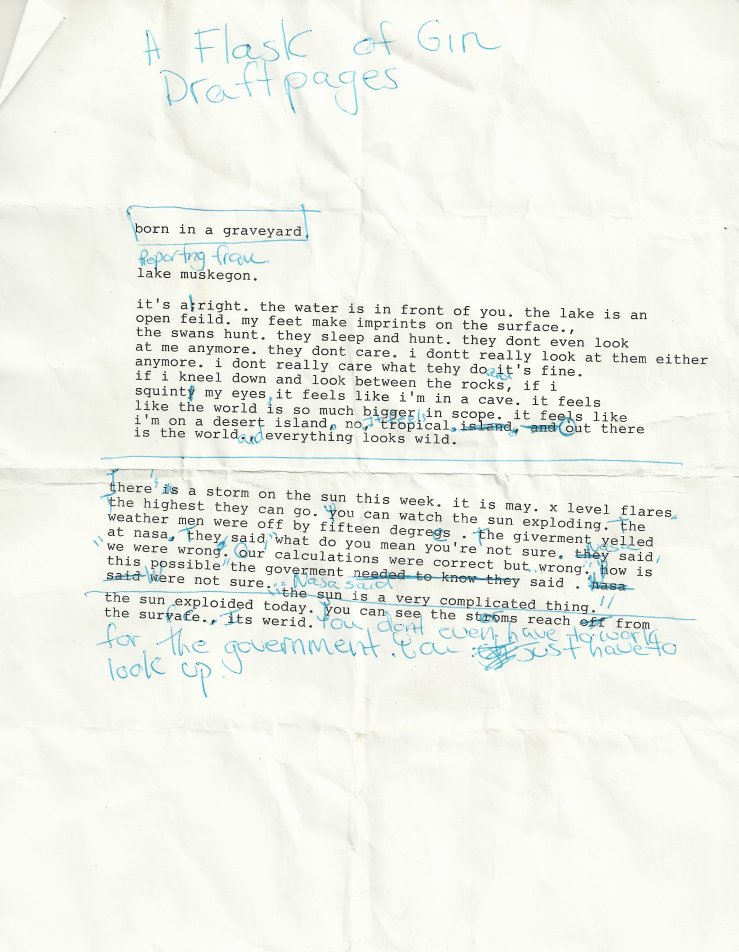 A Flask of Gin
Draft pages
born in a graveyard.
Reporting from
lake muskegon.
it's alright. the water is in front of you. the lake is an
open feild. my feet make imprints on the surface.,
the swans hunt. they sleep and hunt. they dont even look
at me anymore. they dont care. i dontt really look at them either
anymore. i dont really care what tehy do and it's fine.
if i kneel down and look between the rocks, if i
squint my eyes, it feels like i'm in a cave. it feels
like the world is so much bigger in scope. it feels like
i'm on a desert island, no, tropical, island, and Out there
is the world, and everything looks wild.
"there is a storm on the sun this week. it is may. x level flares,
the highest they can go. You can watch the sun exploding. The
weather men were off by fifteen degrees . The giverment yelled
at nasa, They said "what do you mean you're not sure. they Nasa said,
"we were wrong. Our calculations were correct but wrong." "how is
this possible" the goverment needed to know they said . nasa
said "We were not sure... Nasa said
"the sun is a very complicated thing."
the sun exploided today. you can see the stroms reach off from
the survafe., Its werid. You dont even have to work
for the government. You just have to
look up.